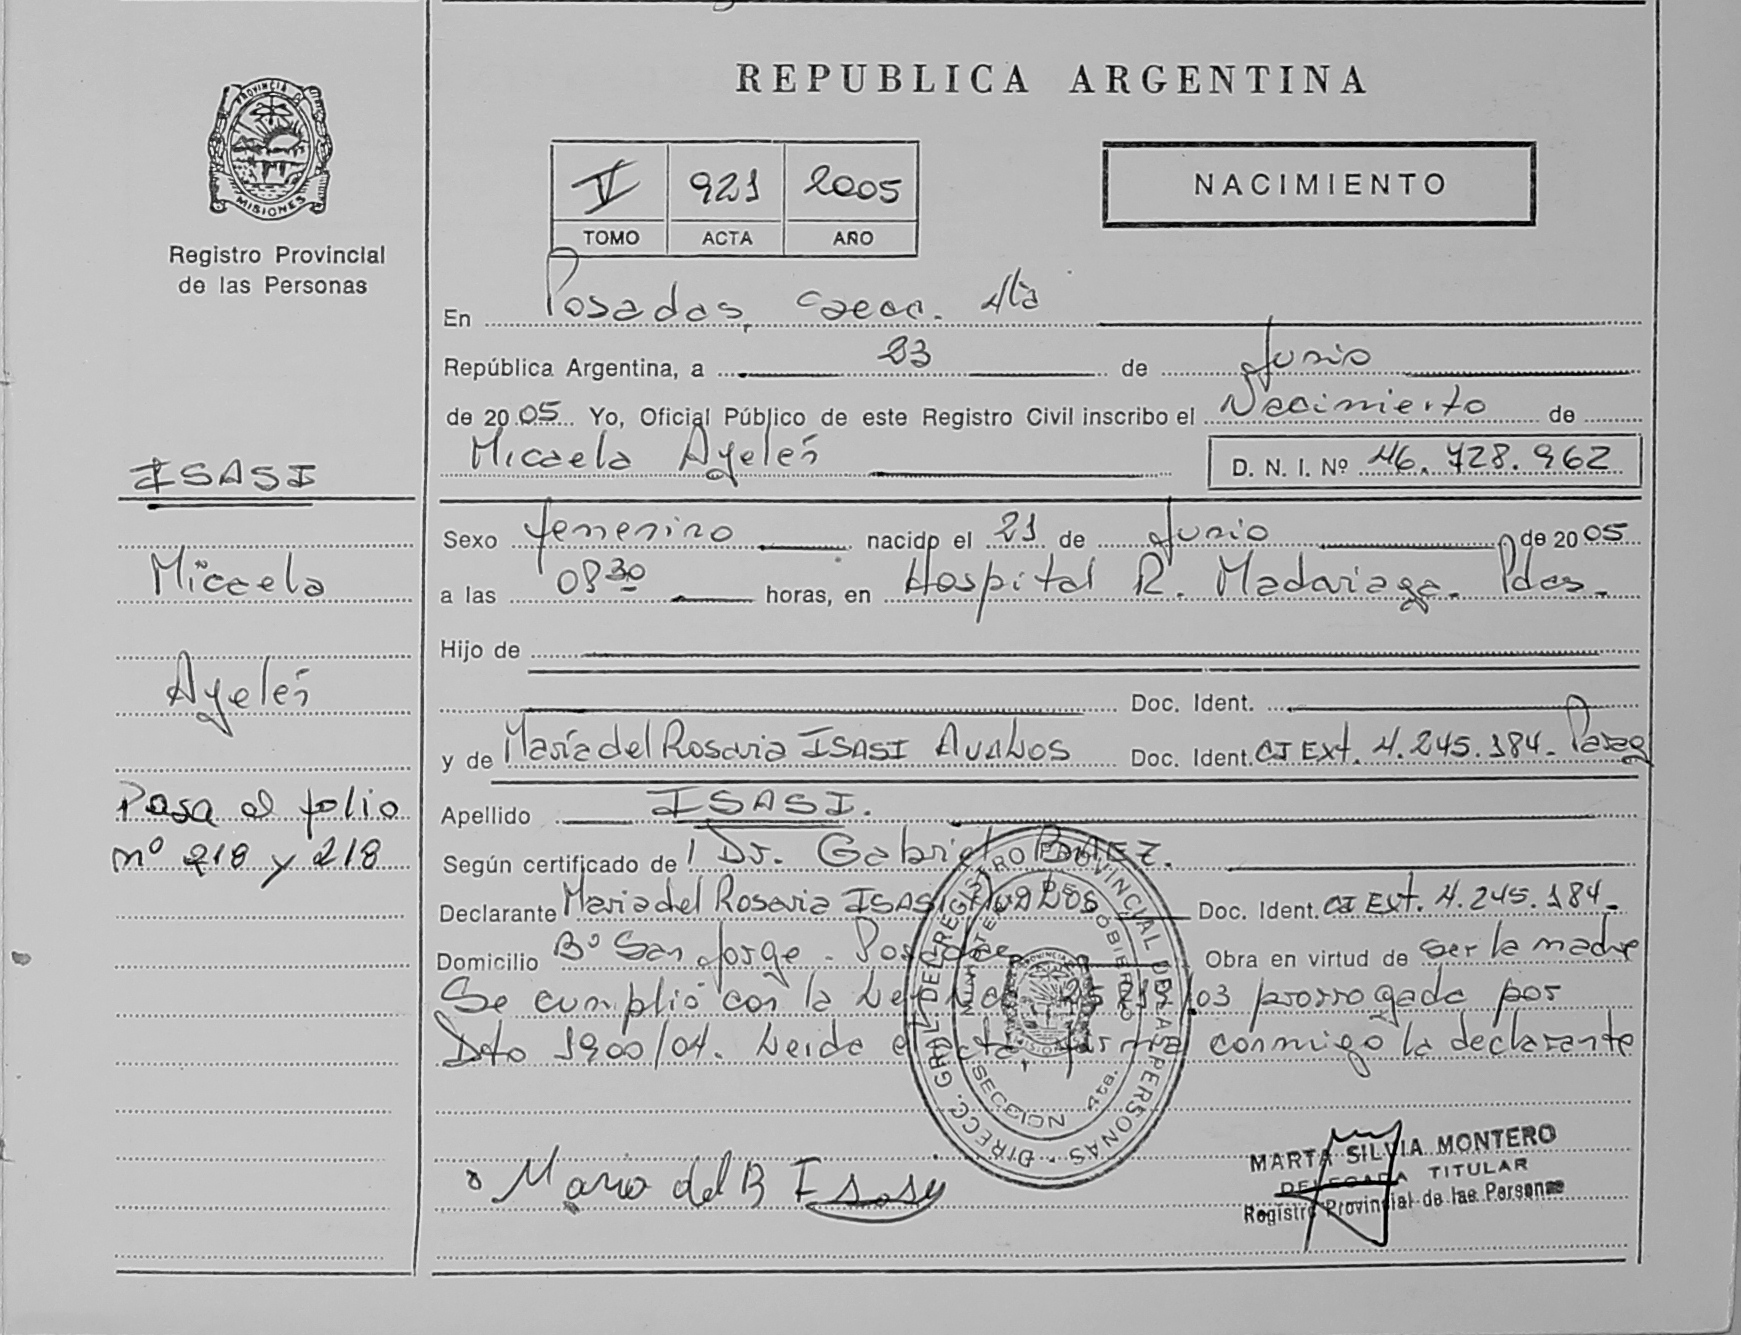 REPUBLICA ARGENTINA
PROVINCIA DE
MISIONES
Registro Provincial
de las Personas
V 921 2005
TOMO ACTA AÑO
NACIMIENTO
En Posadas, Secc. 4ta
República Argentina, a 23 de Junio
de 2005 Yo, Oficial Público de este Registro Civil inscribo el Nacimiento de
Micaela Ayelén D. N. I. Nº 46.728.962
Sexo femenino nacido el 21 de Junio de 2005
a las 08 30 horas, en Hospital R. Madariaga. Pdas.
Hijo de
Doc. Ident.
y de María del Rosario ISASI AVALOS Doc. Ident. CI Ext. 4.245.184- Parag
Apellido ISASI.
Según certificado de Dr. Gabriel BAEZ.
Declarante Maria del Rosario ISASI AVALOS Doc. Ident. CI Ext. 4.245.184-
Domicilio Bº San Jorge - Posadas Obra en virtud de ser la madre
Se cumplió con la Ley 25819/03 prorrogada por
Dto 1900/04. Leida el acta, firma conmigo la declarante
ISASI
Micaela
Ayelén
Pasa al folio
nº 218 y 218
DIRECC. GRAL. DEL REGISTRO PROVINCIAL DE LAS PERSONAS
SECCION 4ta.
Maria del R Isasy
MARTA SILVIA MONTERO
DELEGADA TITULAR
Registro Provincial de las Personas